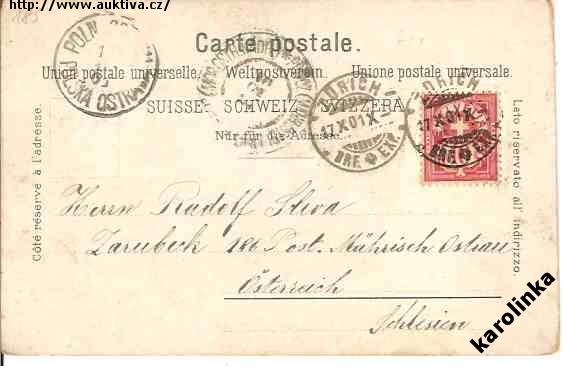 http://www.auktiva.cz/
185
Carte postale.
Union postale universelle. Weltpostverein. Unione postale universale.
SUISSE. SCHWEIZ. SVIZZERA.
Nur für die Adresse.
POLN. OSTRAU
POLSKÁ OSTRAVA
ZÜRICH
17.X.01.X
BRF. EXP.
ZÜRICH
17.X.01.X
BRF. EXP.
Côté réservé à l'adresse.
Lato riservato all' indirizzo.
Herrn Rudolf Sliva
Zarubeck 186 Post. Mährisch Ostrau
Österreich
Schlesien
karolinka